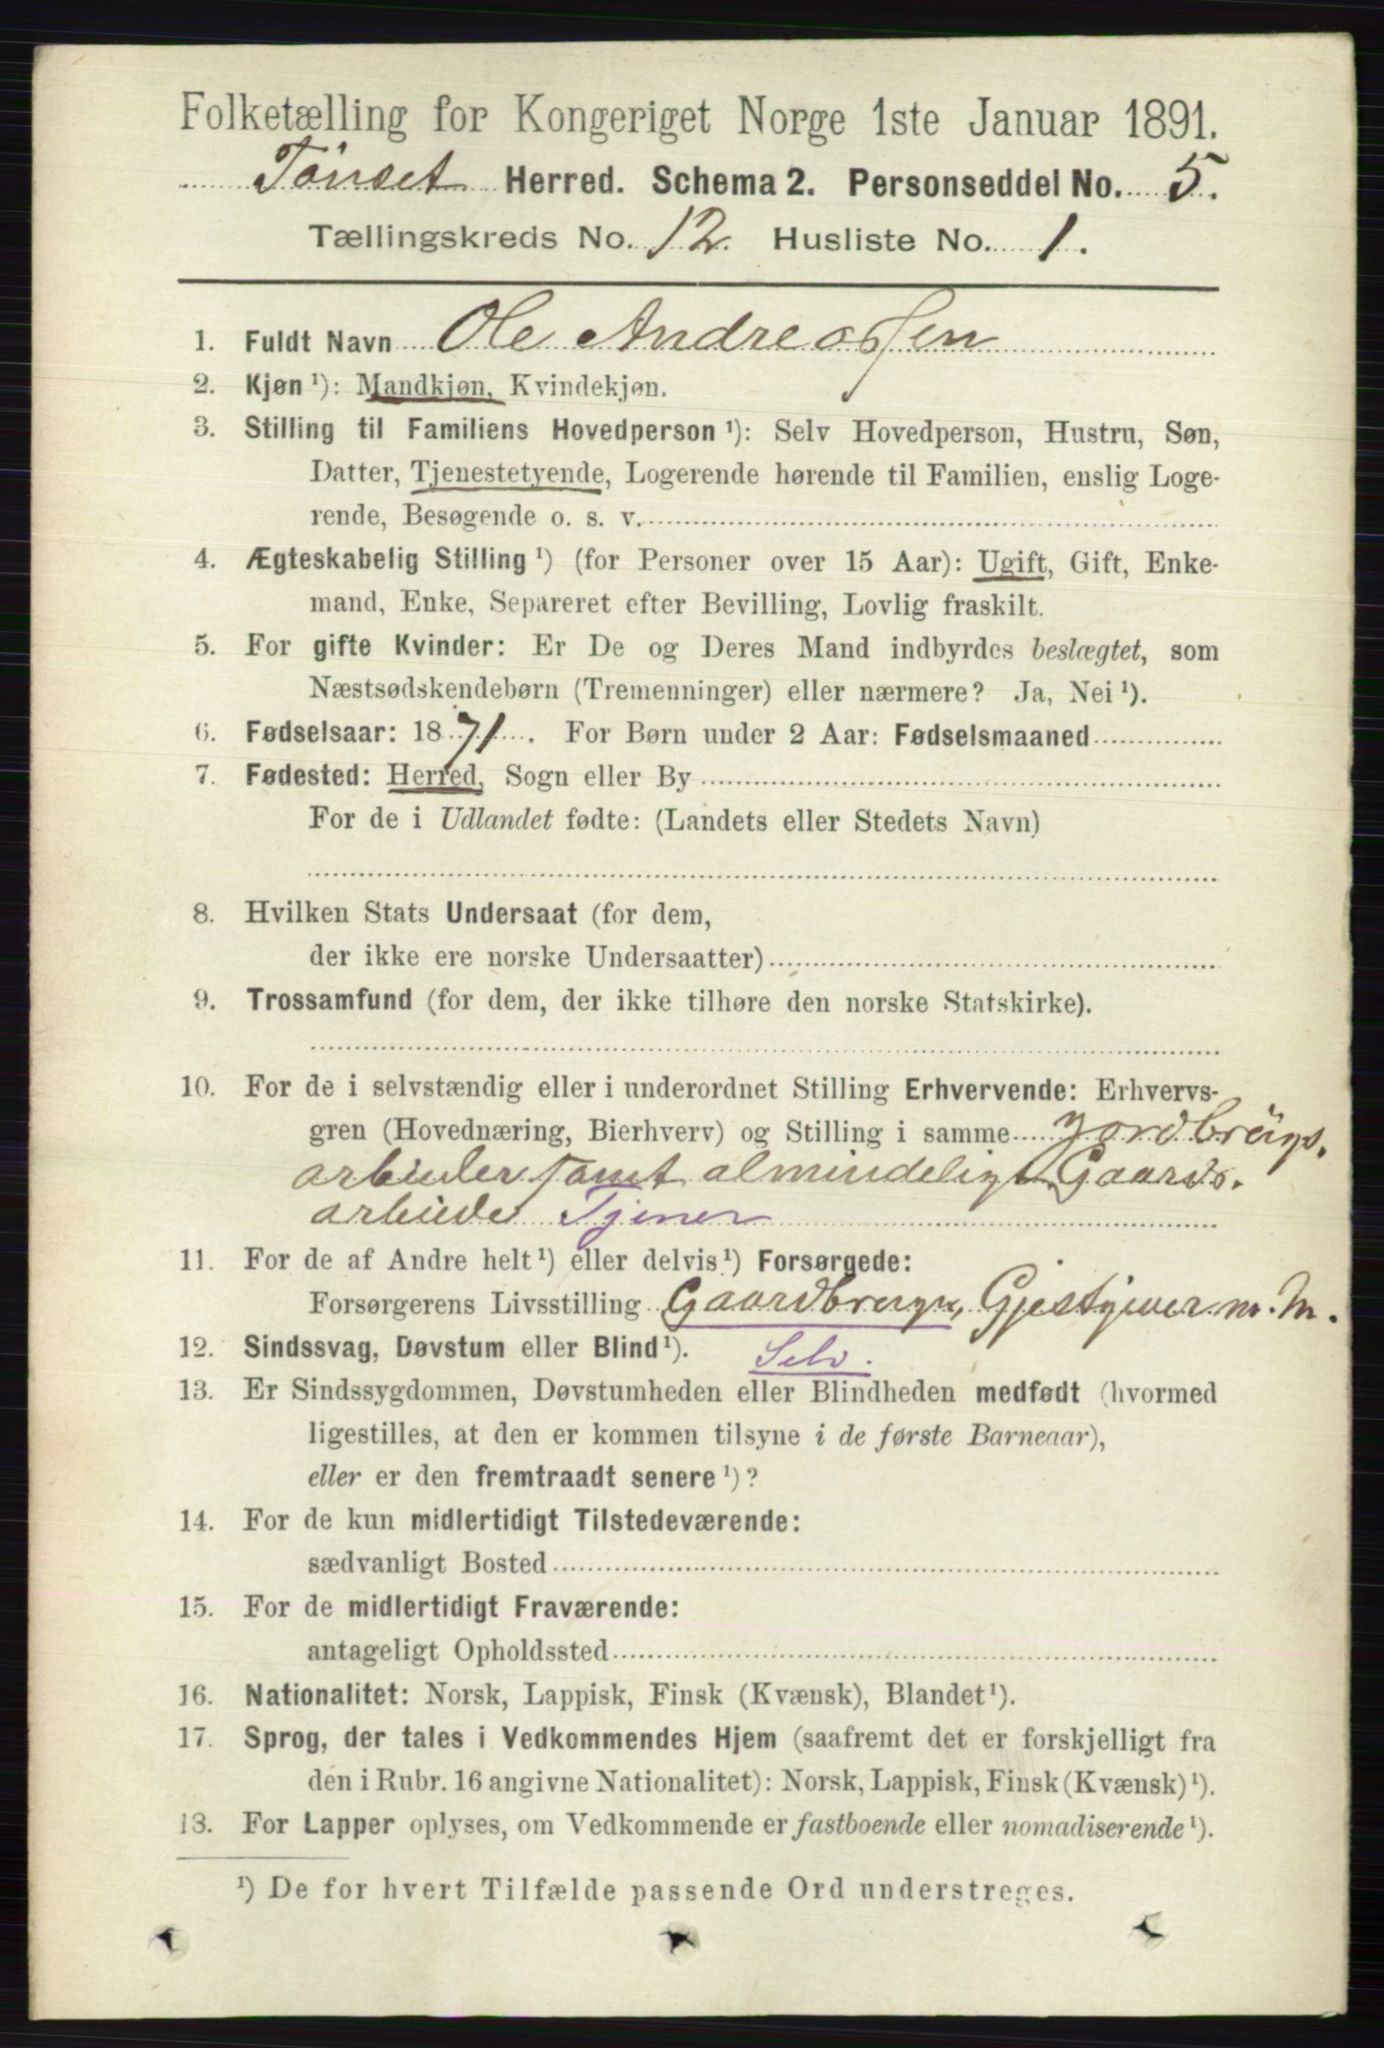 Folketælling for Kongeriget Norge 1ste Januar 1891.
Tönset Herred. Schema 2. Personseddel No. 5.
Tællingskreds No. 12. Husliste No. 1.
1. Fuldt Navn Ole Andreassen
2. Kjøn ¹): Mandkjøn, Kvindekjøn.
3. Stilling til Familiens Hovedperson ¹): Selv Hovedperson, Hustru, Søn,
Datter, Tjenestetyende, Logerende hørende til Familien, enslig Loge-
rende, Besøgende o. s. v.
4. Ægteskabelig Stilling ¹) (for Personer over 15 Aar): Ugift, Gift, Enke-
mand, Enke, Separeret efter Bevilling, Lovlig fraskilt.
5. For gifte Kvinder: Er De og Deres Mand indbyrdes beslægtet, som
Næstsødskendebørn (Tremenninger) eller nærmere? Ja, Nei ¹).
6. Fødselsaar: 1871. For Børn under 2 Aar: Fødselsmaaned
7. Fødested: Herred, Sogn eller By
For de i Udlandet fødte: (Landets eller Stedets Navn)
8. Hvilken Stats Undersaat (for dem,
der ikke ere norske Undersaatter)
9. Trossamfund (for dem, der ikke tilhøre den norske Statskirke).
10. For de i selvstændig eller i underordnet Stilling Erhvervende: Erhvervs-
gren (Hovednæring, Bierhverv) og Stilling i samme Jordbrugs.
arbeider samt almindeligt Gaards.
arbeide Tjener
11. For de af Andre helt ¹) eller delvis ¹) Forsørgede:
Forsørgerens Livsstilling Gaardbruger, Gjestgiver m. m.
12. Sindssvag, Døvstum eller Blind ¹). Selv.
13. Er Sindssygdommen, Døvstumheden eller Blindheden medfødt (hvormed
ligestilles, at den er kommen tilsyne i de første Barneaar),
eller er den fremtraadt senere ¹)?
14. For de kun midlertidigt Tilstedeværende:
sædvanligt Bosted
15. For de midlertidigt Fraværende:
antageligt Opholdssted
16. Nationalitet: Norsk, Lappisk, Finsk (Kvænsk), Blandet ¹).
17. Sprog, der tales i Vedkommendes Hjem (saafremt det er forskjelligt fra
den i Rubr. 16 angivne Nationalitet): Norsk, Lappisk, Finsk (Kvænsk) ¹).
18. For Lapper oplyses, om Vedkommende er fastboende eller nomadiserende ¹).
¹) De for hvert Tilfælde passende Ord understreges.